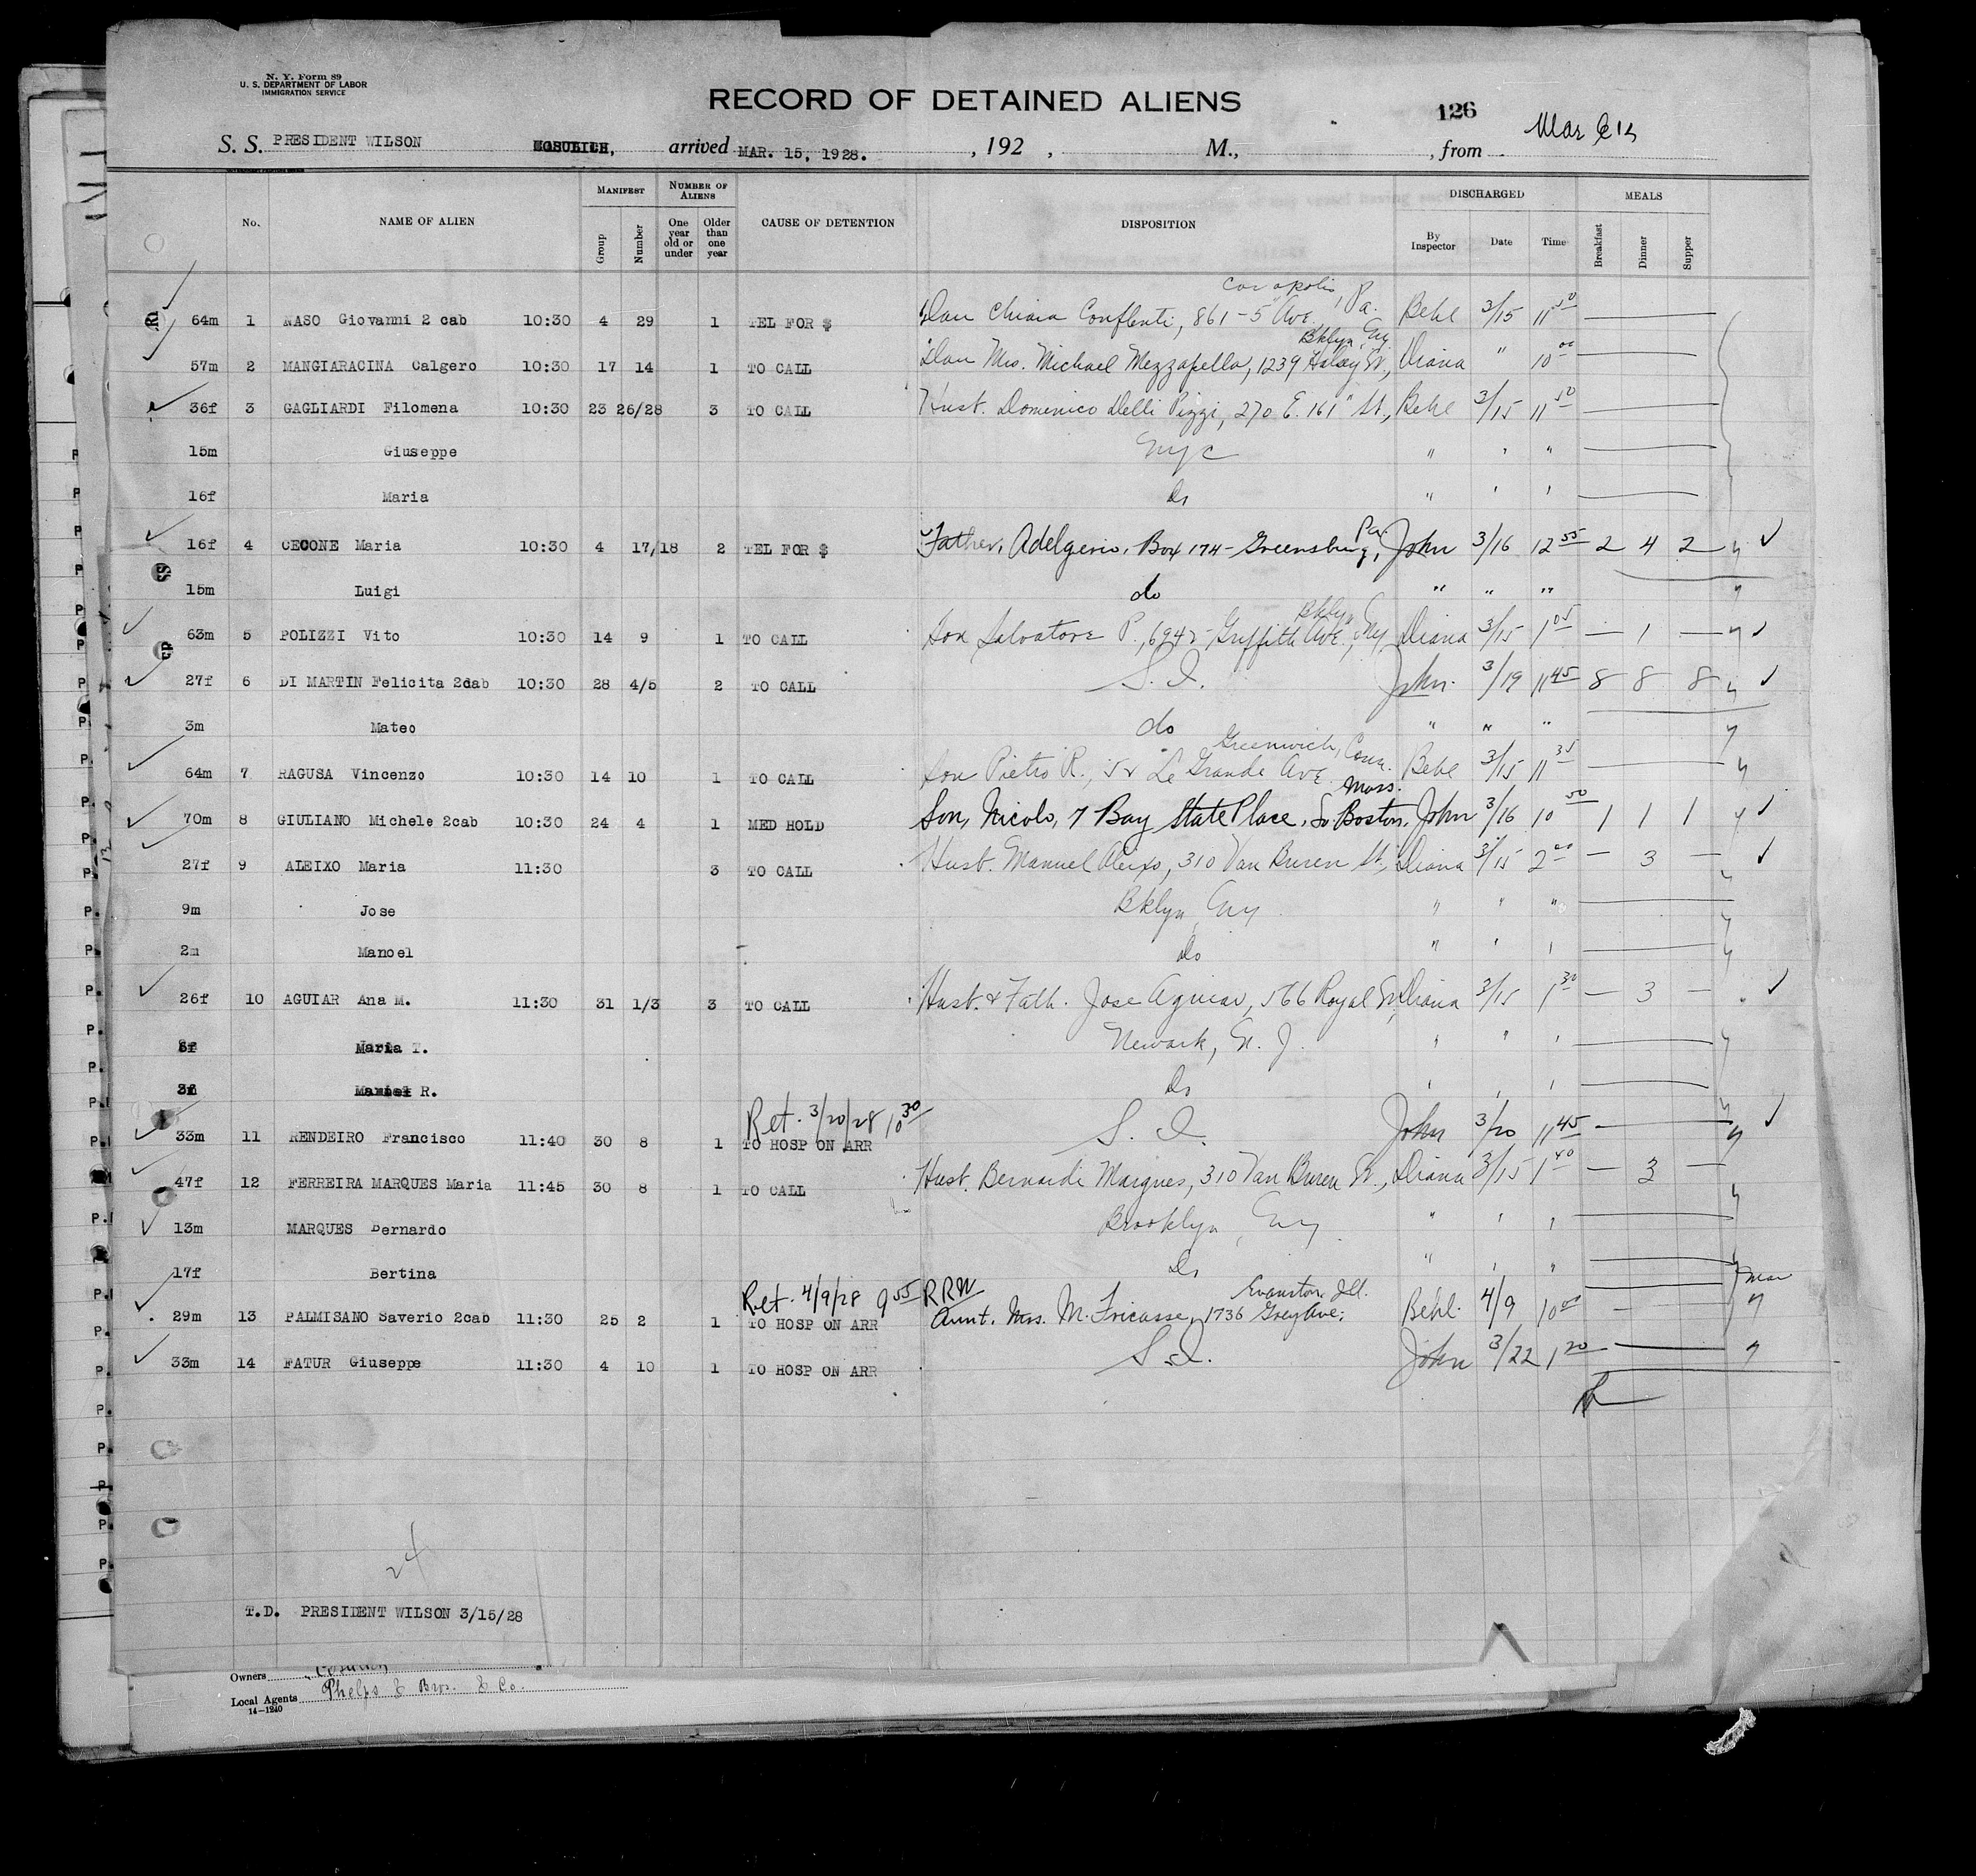 N. Y. Form 89
U. S. DEPARTMENT OF LABOR
IMMIGRATION SERVICE
RECORD OF DETAINED ALIENS
126
S. S. PRESIDENT WILSON COSULICH, arrived MAR. 15, 1928. , 192 , M., , from
No. NAME OF ALIEN MANIFEST Group Number NUMBER OF ALIENS One year old or under Older than one year CAUSE OF DETENTION DISPOSITION DISCHARGED By Inspector Date Time MEALS Breakfast Dinner Supper
Coraopolis, Pa.
64m 1 NASO Giovanni 2 cab 10:30 4 29 1 TEL FOR $ Dau Chiara Conflenti, 861-5" Ave Behl 3/15 11 50
Bklyn, Ny
57m 2 MANGIARACINA Calgero 10:30 17 14 1 TO CALL Dau Mrs. Michael Mezzapella, 1239 Halsey St., Diana " 10 00
36f 3 GAGLIARDI Filomena 10:30 23 26/28 3 TO CALL Hust. Domenico Delli Pizzi, 270 E. 161" St., Behl 3/15 11 50
15m Giuseppe Nyc " " "
16f Maria Do " " "
16f 4 CECONE Maria 10:30 4 17/18 2 TEL FOR $ Father, Adelgerio, Box 174 - Greensburg, Pa John 3/16 12 55 2 4 2
15m Luigi do " " "
63m 5 POLIZZI Vito 10:30 14 9 1 TO CALL Son Salvatore P., 6942- Griffith Ave., Bklyn Ny Diana 3/15 1 05 — 1 —
27f 6 DI MARTIN Felicita 2cab 10:30 28 4/5 2 TO CALL S. I. John 3/19 11 45 8 8 8
3m Mateo do " " "
Greenwich, Conn.
64m 7 RAGUSA Vincenzo 10:30 14 10 1 TO CALL Son Pietro R., 52 Le Grande Ave Behl 3/15 11 35
Mass.
70m 8 GIULIANO Michele 2cab 10:30 24 4 1 MED HOLD Son, Nicolo, 7 Bay State Place, So Boston, John 3/16 10 50 1 1 1
27f 9 ALEIXO Maria 11:30 3 TO CALL Husb. Manuel Aleixo, 310 Van Buren St, Diana 3/15 2 00 — 3 —
9m Jose Bklyn, Ny " " "
2m Manoel Do " " "
26f 10 AGUIAR Ana M. 11:30 31 1/3 3 TO CALL Hust. & Fath. Jose Aguiar, 566 Royal St, Diana 3/15 1 30 — 3 —
Maria T. Newark, N. J. " " "
R. Do " " "
Ret. 3/20/28 10 30
33m 11 RENDEIRO Francisco 11:40 30 8 1 TO HOSP ON ARR S. I. John 3/20 11 45
47f 12 FERREIRA MARQUES Maria 11:45 30 8 1 TO CALL Hust. Bernardi Marques, 310 Van Buren St., Diana 3/15 1 40 — 3 —
13m MARQUES Bernardo Brooklyn, Ny " " "
17f Bertina Do " " "
Ret. 4/9/28 9 55 RRW Evanston, Ill.
29m 13 PALMISANO Saverio 2cab 11:30 25 2 1 TO HOSP ON ARR Aunt. Mrs. M. Fricasse, 1736 Grey Ave; Behl. 4/9 10 00
33m 14 FATUR Giuseppe 11:30 4 10 1 TO HOSP ON ARR S. I. John 3/22 1 20
24
T.D. PRESIDENT WILSON 3/15/28
Owners Cosulich
Local Agents Phelps & Bros. & Co.
14-1240